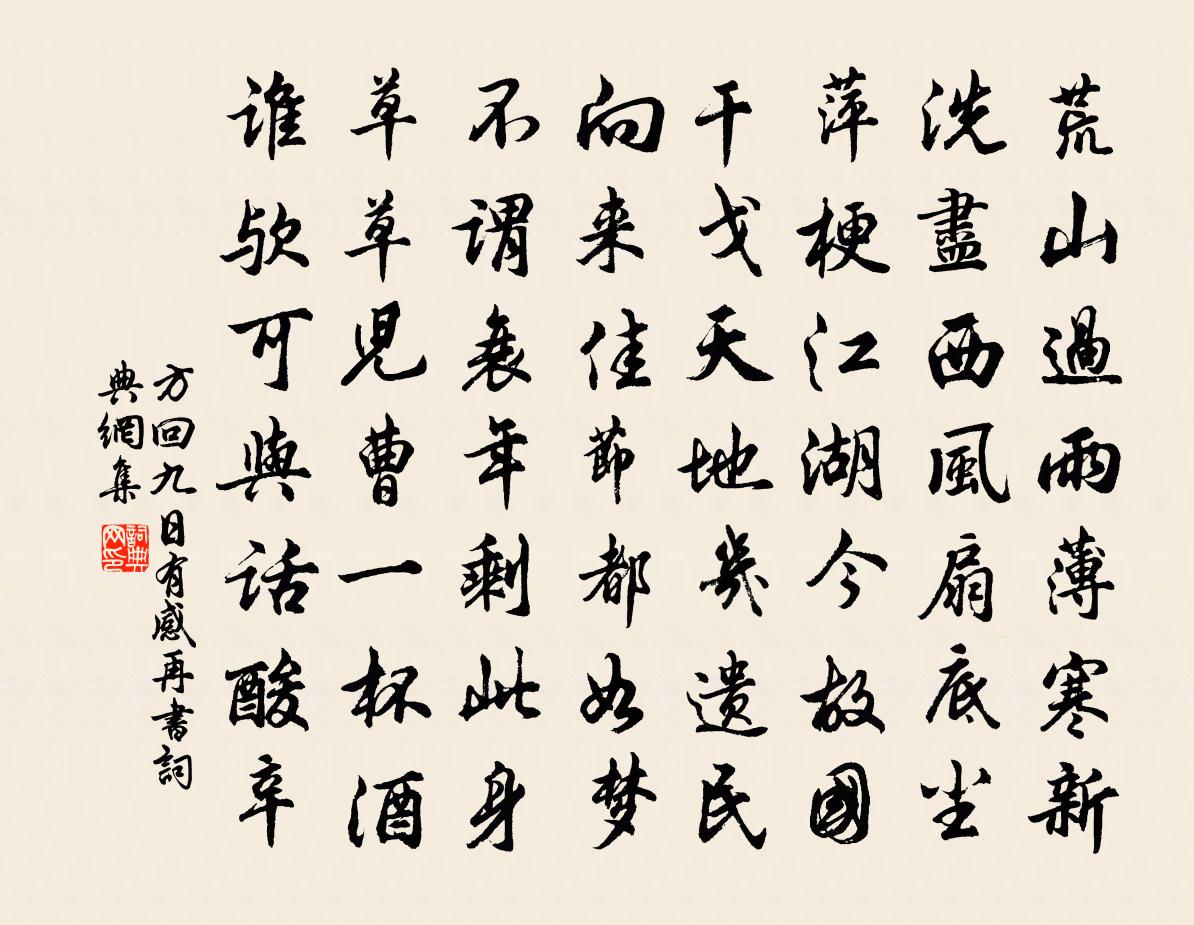 荒山過雨薄寒新
洗盡西風扇底尘
萍梗江湖今故國
干戈天地幾遺民
向来佳節都如梦
不謂衰年剩此身
草草児曹一杯酒
谁欤可與話酸辛
方回九日有感再書詞
典網集
詞典網印